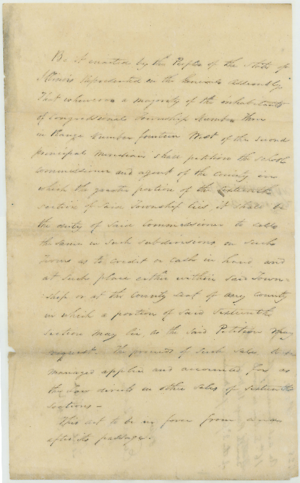 Be it enacted by the People of the State of
Illinois represented in the General Assembly
That whenever a majority of the inhabitants
of Congressional Township Number Three
in Range Number fourteen West of the second
principal meridian shall petition the School
Commissioner and agent of the county in
which the greater portion of the sixteenth
section of said Township lies it shall be
the duty of said Commissioner to sell
the same in such subdivisions on such
terms as to credit or cash in hand and
at such place either within said Town-
ship or at the County seat of any county
in which a portion of said sixteenth
section may lie, as the said Petition may
request. The proceeds of such sale to be
managed applied and accounted for as
the law directs in other sales of sixteenth
sections—
This act to be in force from and
after its passage.